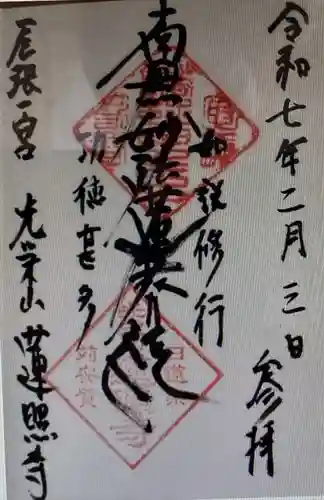 令和七年二月三日
参拝
如説修行
南無妙法蓮華経
功徳甚多
尾張一宮 光栄山 蓮照寺